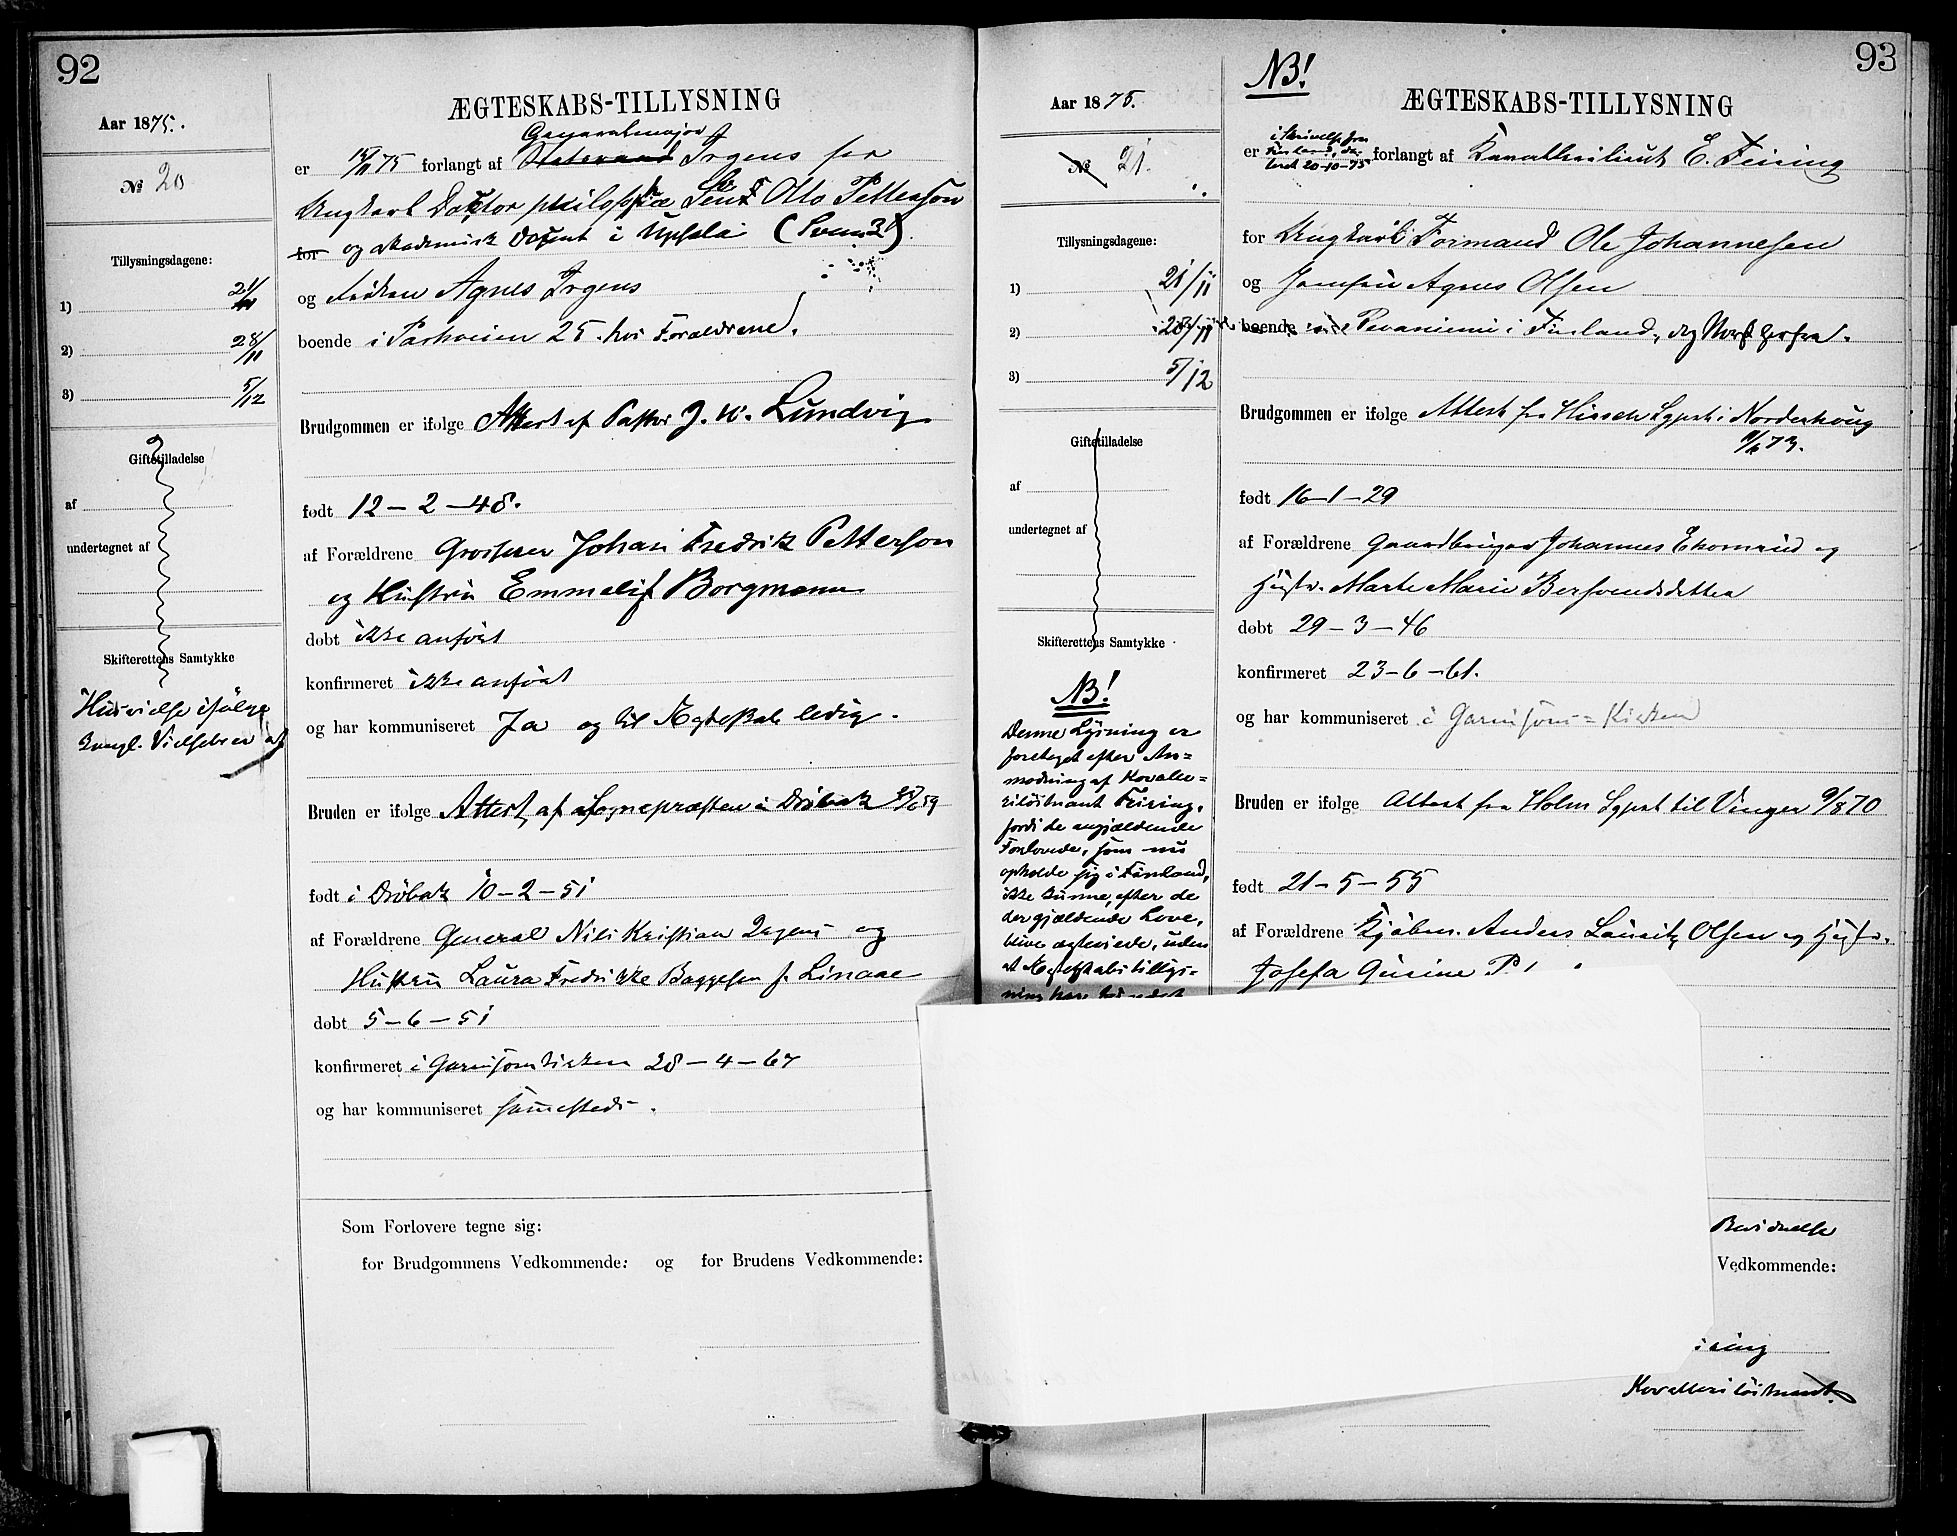 92
Aar 1875.
№ 20
Tillysningsdagene:
1) 21/11
2) 28/11
3) 5/12
Giftetilladelse
af
undertegnet af
Skifterettens Samtykke
Husvielse ifølge
kongl. Vielsebrev af
ÆGTESKABS-TILLYSNING
Generalmajor
er 75 forlangt af Irgens for
Ungkarl Doctor philosophiæ Otto Petterson
for og akademisk Docent i Upsala (Svensk)
og Frøken Agnes Irgens
boende i Parkveien 25 hos Forældrene.
Brudgommen er ifølge Attest af Pastor J. W. Lundvig
født 12-2-48.
af Forældrene Grosserer Johan Fredrik Petterson
og Hustru Emmelif Borgmann
døbt ikke anført
konfirmeret ikke anført
og har kommuniseret Ja og til Ægteskab ledig.
Bruden er ifølge Attest af Sognepræsten i Drøbak 59
født i Drøbak 10-2-51
af Forældrene General Nils Kristian Irgens og
Hustru Laura Fredrikke Baggesen f. Linaae
døbt 5-6-51
konfirmeret i Garnisonskirken 28-4-67
og har kommuniseret sammesteds.
Som Forlovere tegne sig:
for Brudgommens Vedkommende: og for Brudens Vedkommende:
93
NB!
Aar 1875.
№ 21.
Tillysningsdagene:
1) 21/11
2) 28/11
3) 5/12
Giftetilladelse
af
undertegnet af
Skifterettens Samtykke
NB!
Denne Lysning er
foretaget efter An-
modning af Kavale-
riløitnant Feiring,
fordi de angjældende
Forlovede, som nu
opholde sig i Finland,
ikke kunne, efter de
der gjældende Love,
blive ægteviede, uden
at Ægteskabstillys-
ning
ÆGTESKABS-TILLYSNING
i Skrivelse fra
Finland, da-
teret 20-10-75
er forlangt af Kavallerilieut E. Feiring
for Ungkarl Formand Ole Johannesen
og Jomfru Agnes Olsen
boende i Finland, dog Norsk herfra.
Brudgommen er ifølge Attest fra Hirsch Sgprst i Norderhoug
73.
født 16-1-29
af Forældrene Gaardbruger Johannes og
Hustr. Marte Marie Bersvendsdatter
døbt 29-3-46
konfirmeret 23-6-61.
og har kommuniseret i Garnisons-Kirken
Bruden er ifølge Attest fra Holm Sgprst til Vinger 9/8 70
født 21-5-55
af Forældrene Kjøbm. Anders Lauritz Olsen og Hustr.
Josefa Gurine
Bevidnelse
Vedkommende:
Kavalleriløitnant.